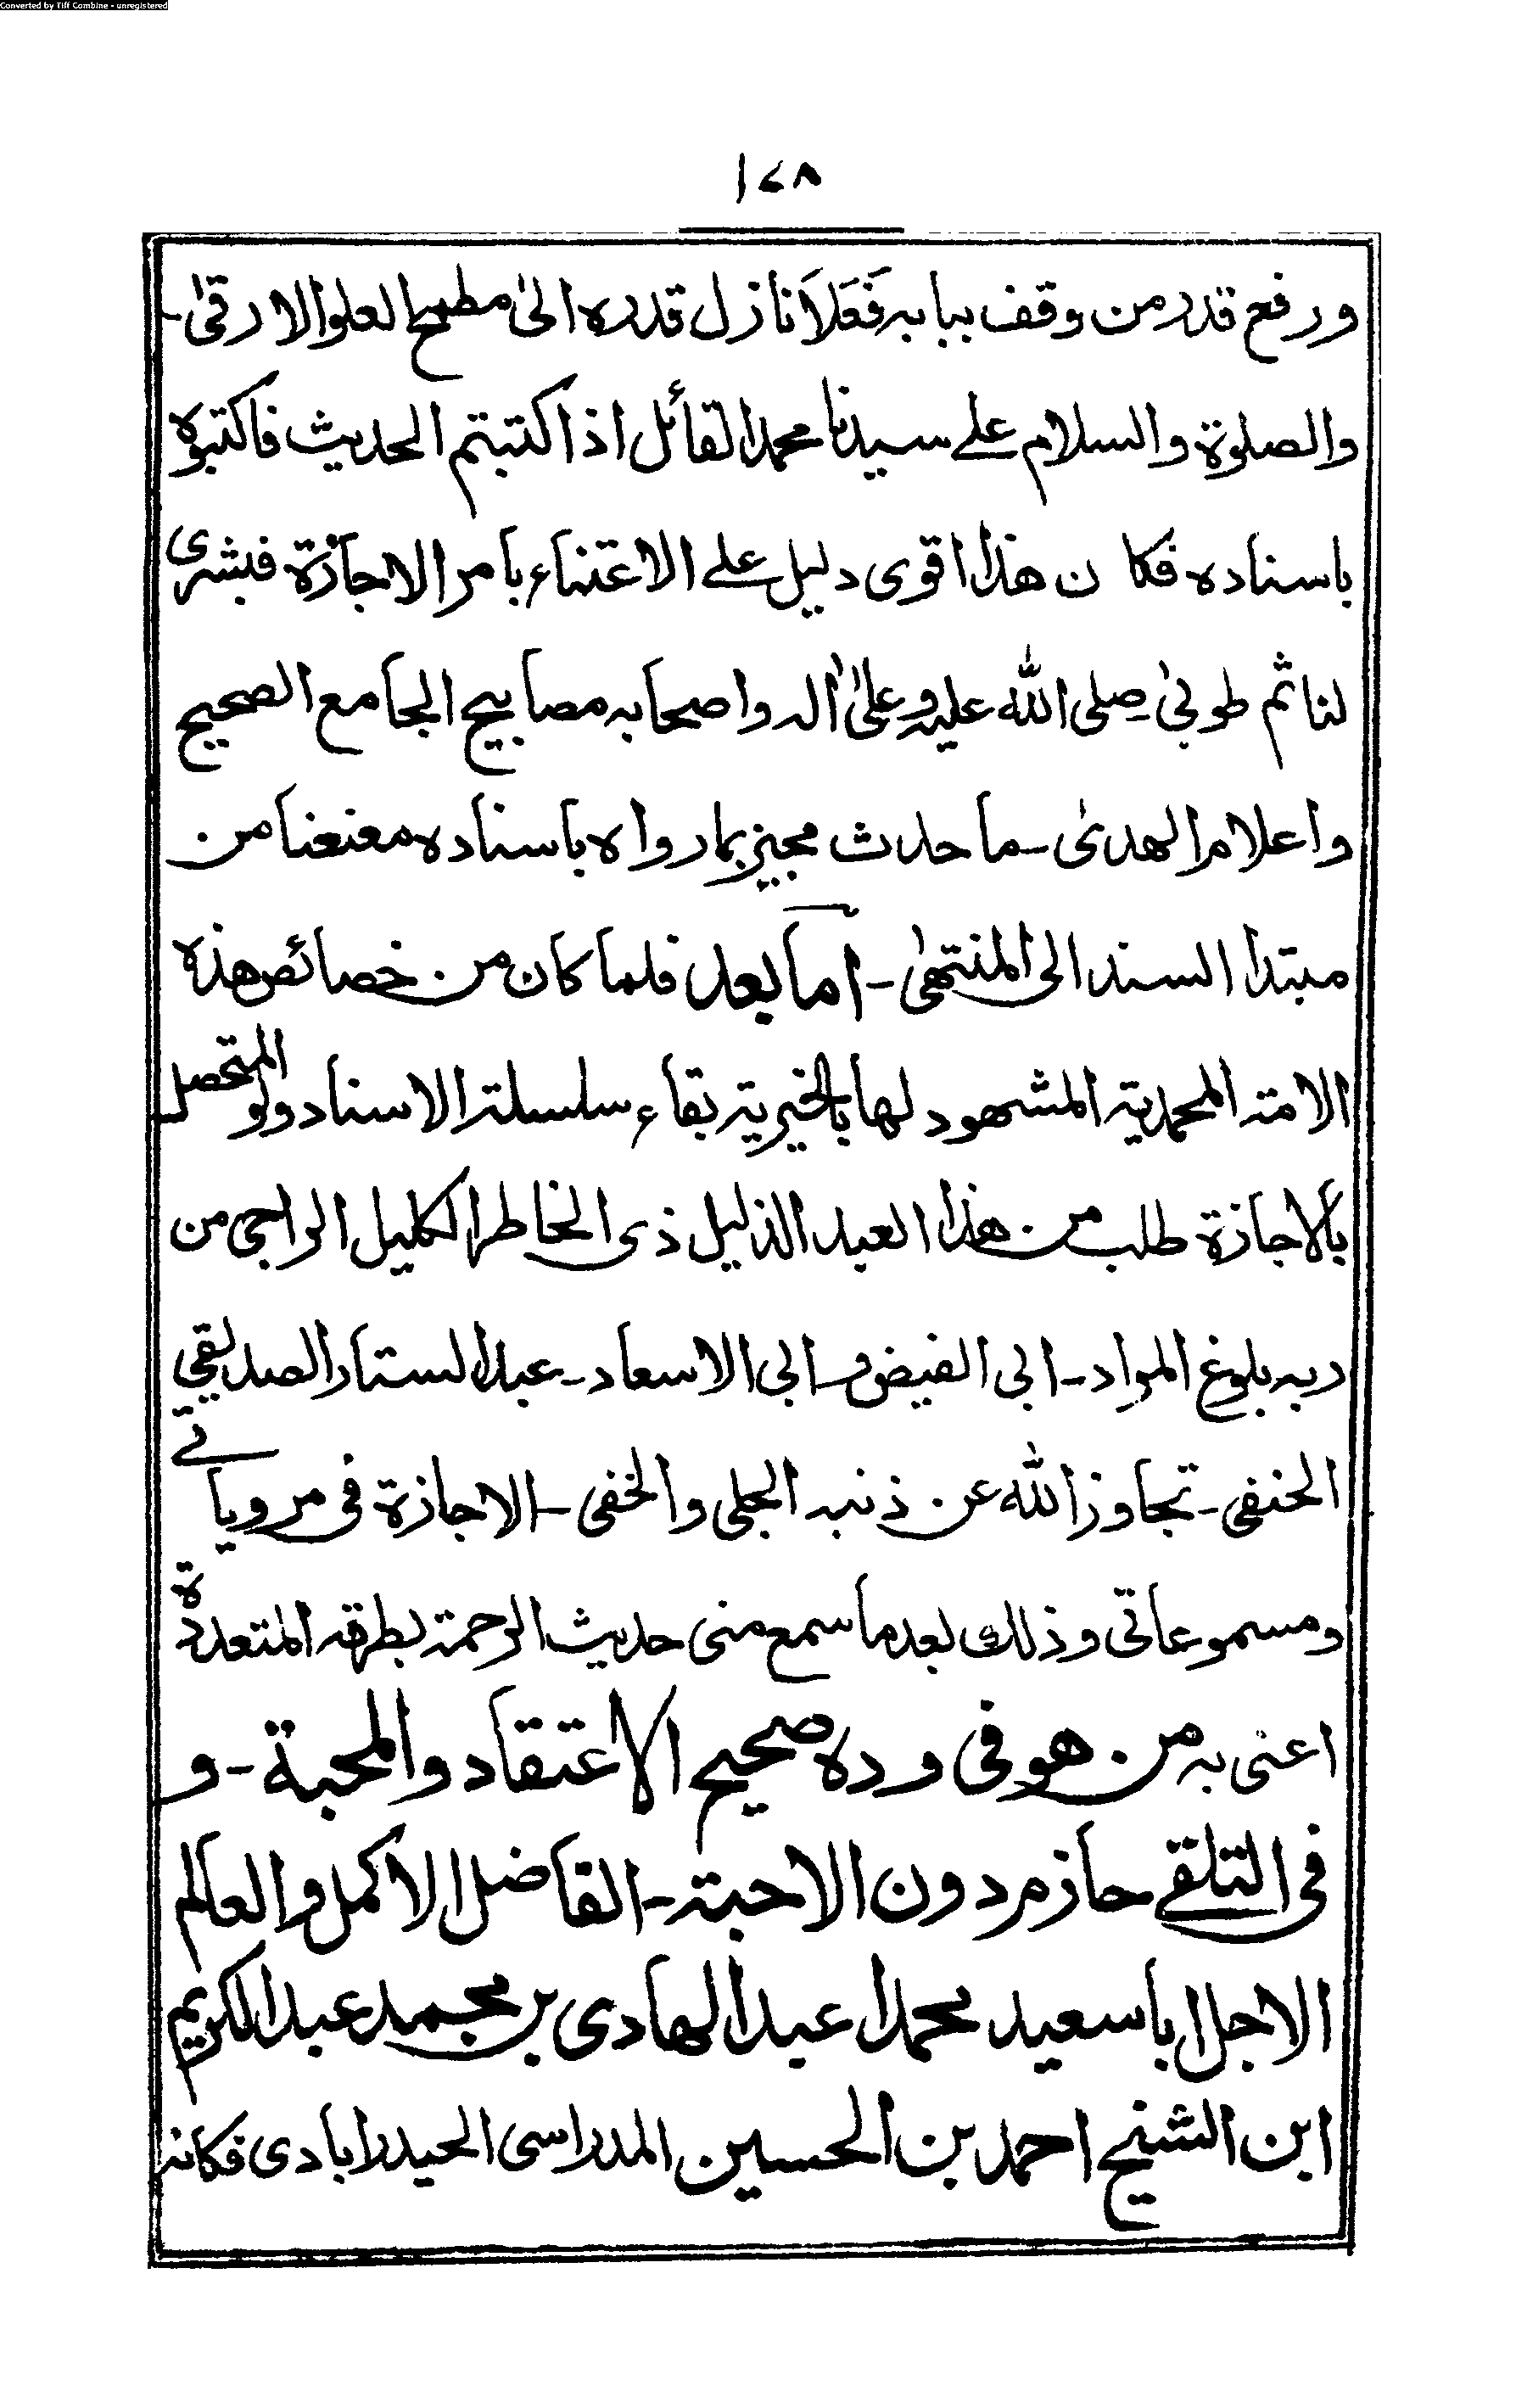 Converted by Tiff Combine - unregistered
١٤٨
ورفع قدر من وقف ببابه فَعَلَا نازل قدره الىٰ مطمح العلو الارقىٰ-
والصلوة والسلام علے سيدنا محمد القائل اذا كتبتم الحديث فاكتبوه
باسناده فكان هذا اقوى دليل علے الاعتناء بامر الاجازة فبشرى
لنا ثم طوبىٰ- صلى الله عليه وعلىٰ اٰله واصحابه مصابيح الجامع الصحيح
واعلام الهدىٰ- ما حدث مجيز بما رواه باسناده معنعنا من
مبتدا السند الى المنتهىٰ- اما بعد فلما كان من خصائص هذه
الامة المحمدية المشهود لها بالخيرية بقاء سلسلة الاسناد ولو المتحصل
بالاجازة طلب من هذا العبد الذليل ذى الخاطر الكليل الراجى من
ربه بلوغ المراد- ابى الفيض و ابى الاسعاد- عبد الستار الصديقي
الحنفى- تجاوز الله عن ذنبه الجلى والخفى- الاجازة فى مروياتے
ومسموعاتى وذلك بعد ما سمع منى حديث الرحمة بطرقه المتعددة
اعنى به من هو فى وده صحيح الاعتقاد والمحبة- و
فى التلقے حازم دون الاحبة- الفاضل الاكمل والعالم
الاجل ابا سعيد محمد عبد الهادى بن محمد عبد الكريم
ابن الشيخ احمد بن الحسين المدراسى الحيدرابادى فكانه